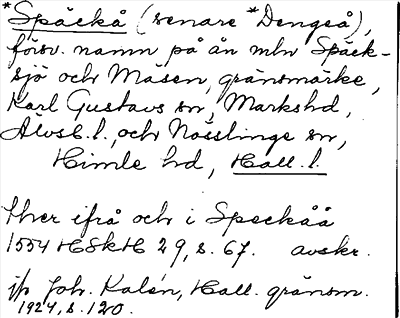 *Späckå (senare *Dengså),
försv. namn på ån mln Späck-
sjö och Mäsen, gränsmärke,
Karl Gustavs sn, Markshd,
Älvsb. l., och Nösslinge sn,
Himle hd, Hall. l.
thær ifrå och i Speckåå
1554 HSkH 29, s. 67. avskr.
jfr Joh. Kalén, Hall. gränsm.
1924, s. 120.